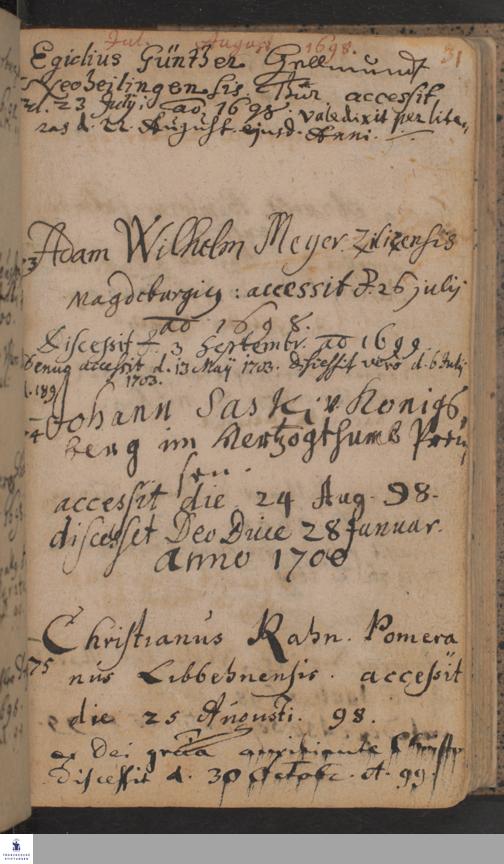 Jul. August 1698.
31
Egidius Günther Hellmund
Neoheilingensis Thür accessit
d. 23 Julij. aō 1698. valedixit per lite,
ras d. 22. August. ejusd. Anni.
Adam Wilhelm Meyer. Zilizensis
Magdeburgig: accessit d. 26 julij
aō 1698.
Discessit d. 3 Septembr. aō 1699.
Denuo accessit d. 13 Maij 1703. discessit vero d. 6 Julij
1703.
Johann Saski v. Königs,
berg im Hertzogthumb Preü,
sen.
accessit die 24 Aug. 98.
discesset Deo Duce 28 Januar.
Anno 1700
Christianus Rahn. Pomera
75 nus Libbehnensis. accessit
die 25 Augusti. 98.
Dei gratia
discessit d. 30 Octobr. 99.